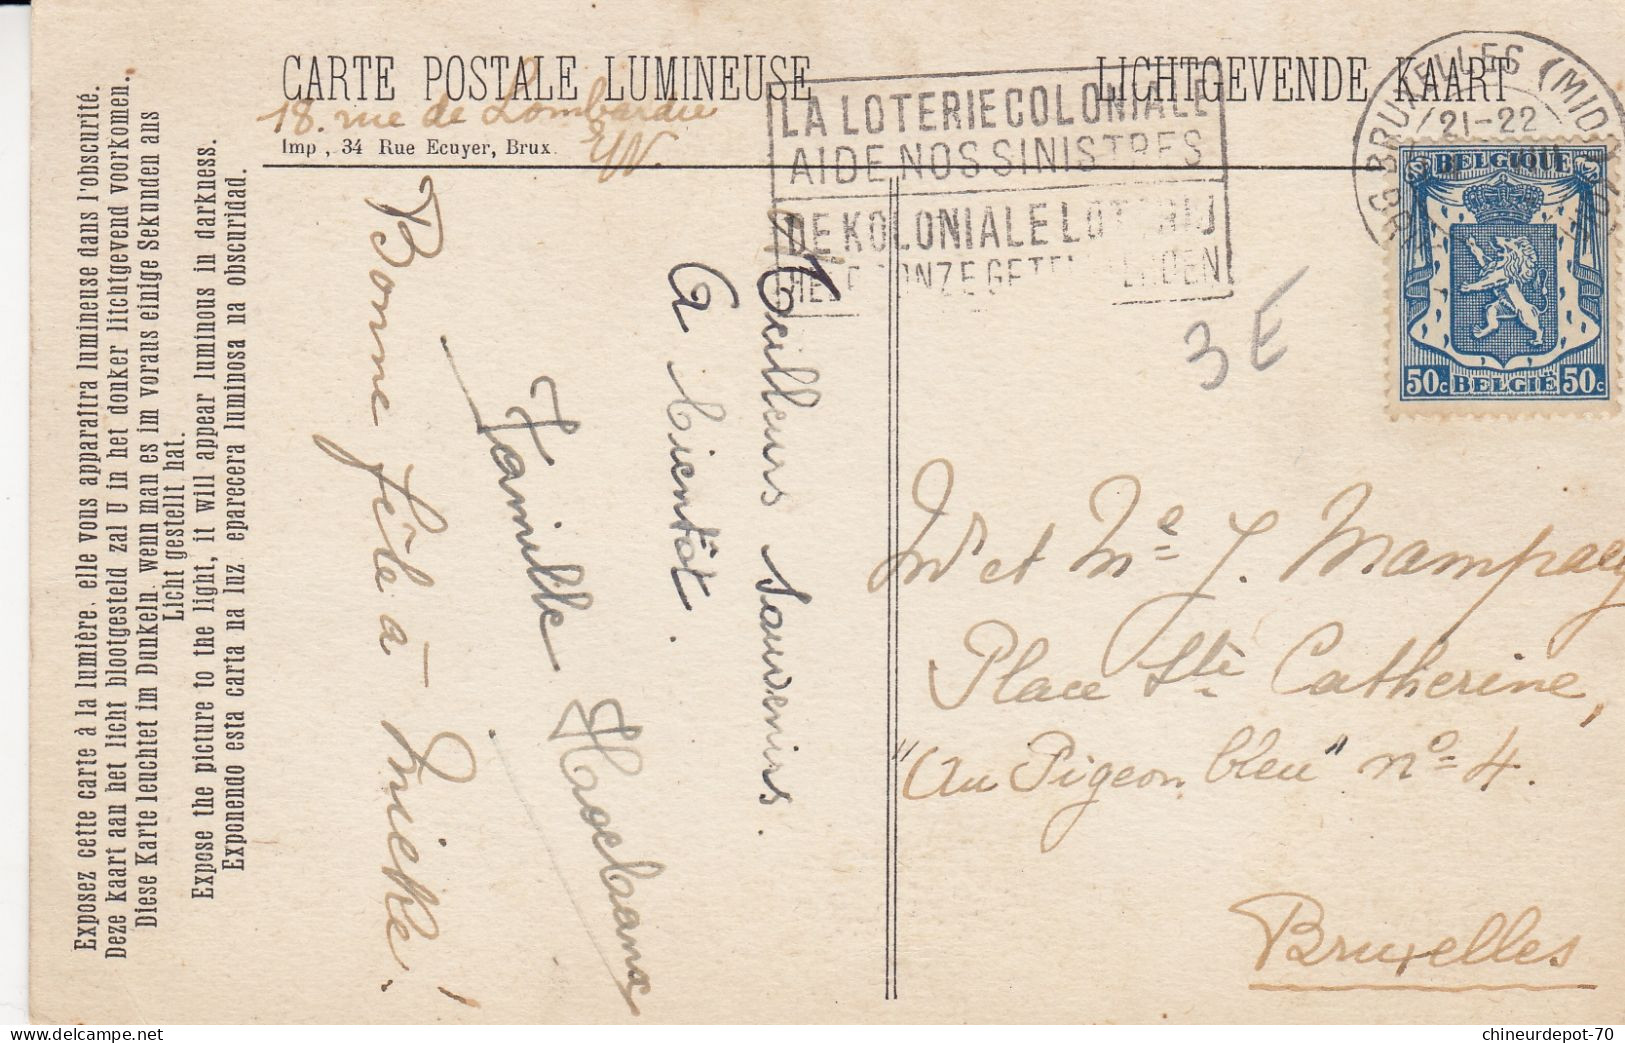 CARTE POSTALE LUMINEUSE
LICHTGEVENDE KAART
18. rue de Lombardie
E/V.
Imp , 34 Rue Ecuyer, Brux.
LA LOTERIE COLONIALE
AIDE NOS SINISTRES
DE KOLONIALE LOTERIJ
ONZE
BRUXELLES (MIDI)
21-22
BELGIQUE
50c BELGIË 50c
3 E
Exposez cette carte à la lumière. elle vous apparaîtra lumineuse dans l'obscurité.
Deze kaart aan het licht blootgesteld zal U in het donker litchtgevend voorkomen.
Diese Karte leuchtet im Dunkeln. wenn man es im voraus einige Sekunden ans
Licht gestellt hat.
Expose the picture to the light, it will appear luminous in darkness.
Exponendo esta carta na luz eparecera luminosa na obscuridad.
Meilleurs souvenirs.
A bientôt.
Famille
Bonne fête à Mieke!
Mr et Me J. Mampaey
Place Ste Catherine,
"Au Pigeon bleu" no 4.
Bruxelles
chineurdepot-70